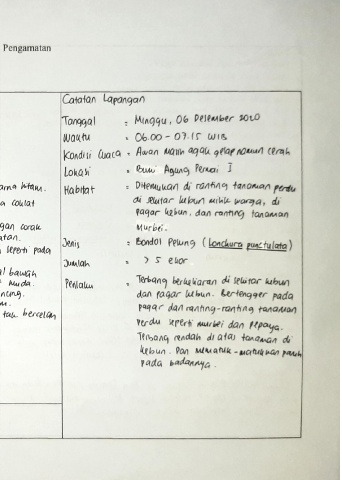 Pengamatan
Catatan Lapangan
Tanggal : Minggu, 06 Desember 2020
Waktu : 06.00 - 07.15 WIB
Kondisi Cuaca : Awan masih agak gelap namun cerah
Lokasi : Bumi Agung Permai I
Habitat : Ditemukan di ranting tanaman perdu
di sekitar kebun milik warga, di
pagar kebun, dan ranting tanaman
Murbei.
Jenis : Bondol Peking (Lonchura punctulata)
Jumlah : > 5 ekor
Perilaku : Terbang berkeliaran di sekitar kebun
dan pagar kebun. Bertengger pada
pagar dan ranting-ranting tanaman
perdu seperti murbei dan pepaya.
Terbang rendah di atas tanaman di
kebun. Dan mematuk-matukkan paruh
pada badannya.
hitam.
a coklat
gan corak
atan.
seperti pada
bawah
muda.
ncing.
m.
tak bercelah